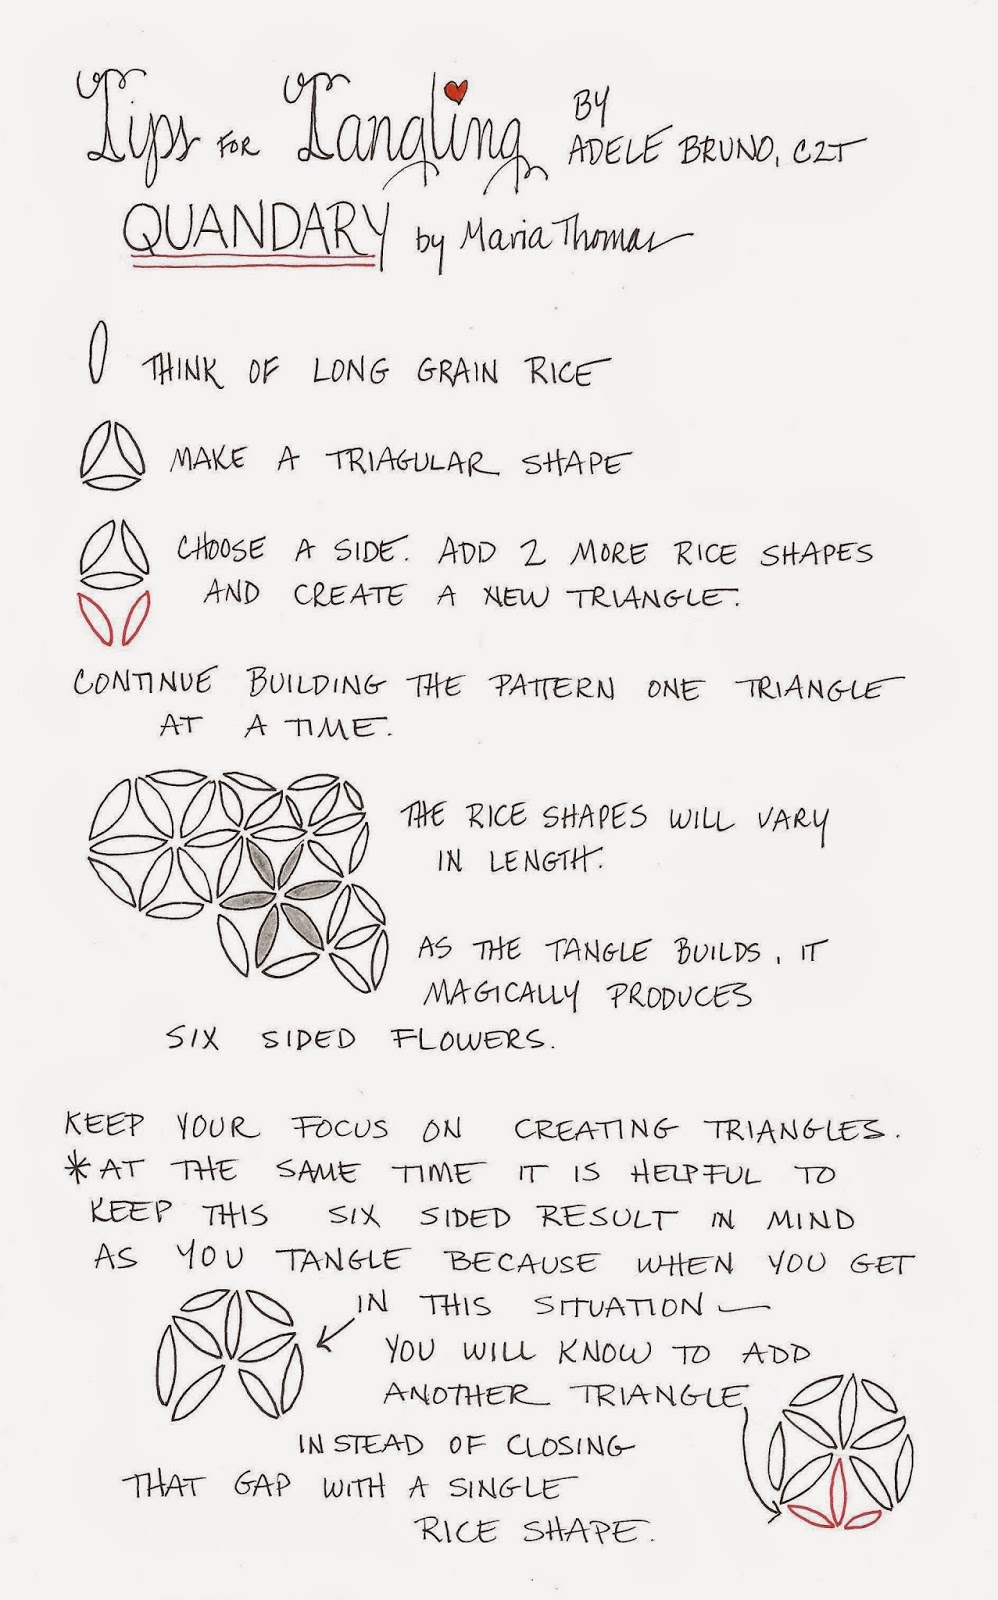 Tips FOR Tangling BY
ADELE BRUNO, CZT
QUANDARY by Maria Thomas
THINK OF LONG GRAIN RICE
MAKE A TRIAGULAR SHAPE
CHOOSE A SIDE. ADD 2 MORE RICE SHAPES
AND CREATE A NEW TRIANGLE.
CONTINUE BUILDING THE PATTERN ONE TRIANGLE
AT A TIME.
THE RICE SHAPES WILL VARY
IN LENGTH.
AS THE TANGLE BUILDS, IT
MAGICALLY PRODUCES
SIX SIDED FLOWERS.
KEEP YOUR FOCUS ON CREATING TRIANGLES.
*AT THE SAME TIME IT IS HELPFUL TO
KEEP THIS SIX SIDED RESULT IN MIND
AS YOU TANGLE BECAUSE WHEN YOU GET
IN THIS SITUATION —
YOU WILL KNOW TO ADD
ANOTHER TRIANGLE
INSTEAD OF CLOSING
THAT GAP WITH A SINGLE
RICE SHAPE.